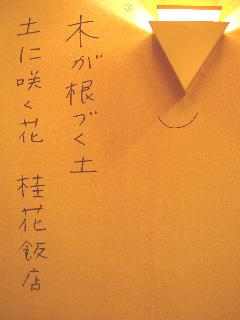 木が根づく土
土に咲く花　桂花飯店